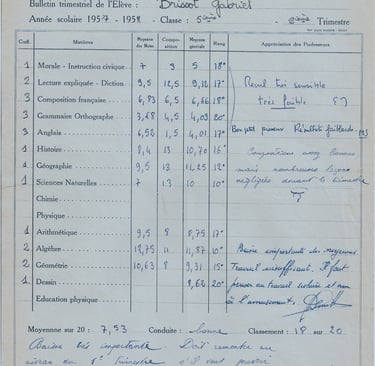 Bulletin trimestriel de l'Élève : Brissot Gabriel
Année scolaire 1957 - 1958 - Classe : 5ième 2ième Trimestre
Coef. Matières Moyenne des Notes Composition Moyenne générale Rang Appréciation des Professeurs
1 Morale - Instruction civique 7 3 5 18°
2 Lecture expliquée - Diction 9,5 12,5 9,12 17°
3 Composition française 6,83 6,5 6,66 18°
3 Grammaire Orthographe 3,48 4,5 4,03 20°
très faible
3 Anglais 6,52 1,5 4,01 17°
1 Histoire 8,4 13 10,70 16°
1 Géographie 9,5 13 11,25 12°
Compositions assez bonnes
mais nombreuses leçons
1 Sciences Naturelles 7 13 10 10°
négligées durant le trimestre
Chimie
Physique
4 Arithmétique 9,5 8 8,75 17°
2 Algèbre 12,75 11 11,87 10°
Baisse importante des moyennes.
2 Géométrie 10,63 8 9,31 15°
Travail insuffisant. Il faut
penser au travail scolaire et non
1 Dessin 8,62 20°
à l'amusement.
Education physique
Moyenne sur 20 : 7,53 Conduite : bonne Classement : 18 sur 20
Baisse très importante. Doit remonter au
niveau du 1er Trimestre s'il veut